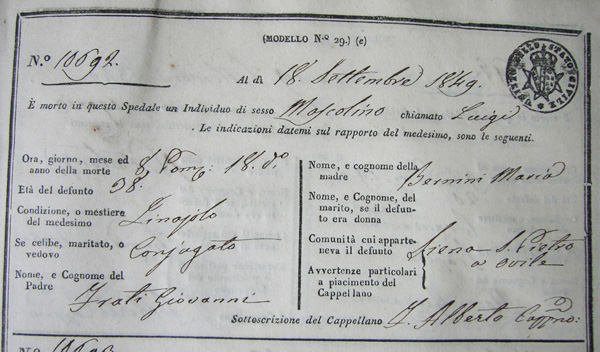 (MODELLO N.º 29.) (e)
N.º 10692.
Al dì 18. Settembre 1849.
È morto in questo Spedale un Individuo di sesso Mascolino chiamato Luigi
. Le indicazioni datemi sul rapporto del medesimo, sono le seguenti.
Ora, giorno, mese ed
anno della morte 8 Pom: 18. do
Età del defunto 38.
Condizione, o mestiere
del medesimo Linajolo
Se celibe, maritato, o
vedovo Conjugato
Nome, e Cognome del
Padre Frati Giovanni
Nome, e cognome della
madre Bernini Maria
Nome, e Cognome, del
marito, se il defun-
to era donna
Comunità cui apparte-
neva il defunto Siena S. Pietro
a ovile
Avvertenze particolari
a piacimento del
Cappellano
Sottoscrizione del Cappellano F. Alberto Capp.no:
N.º 10693